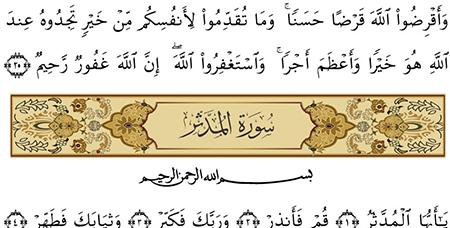 وَأَقْرِضُوا۟ ٱللَّهَ قَرْضًا حَسَنًا ۚ وَمَا تُقَدِّمُوا۟ لِأَنفُسِكُم مِّنْ خَيْرٍ تَجِدُوهُ عِندَ
ٱللَّهِ هُوَ خَيْرًا وَأَعْظَمَ أَجْرًا ۚ وَٱسْتَغْفِرُوا۟ ٱللَّهَ ۖ إِنَّ ٱللَّهَ غَفُورٌ رَّحِيمٌ ﴿٢٠﴾
سورة المدثر
بسم الله الرحمن الرحيم
يَٰٓأَيُّهَا ٱلْمُدَّثِّرُ ﴿١﴾ قُمْ فَأَنذِرْ ﴿٢﴾ وَرَبَّكَ فَكَبِّرْ ﴿٣﴾ وَثِيَابَكَ فَطَهِّرْ ﴿٤﴾